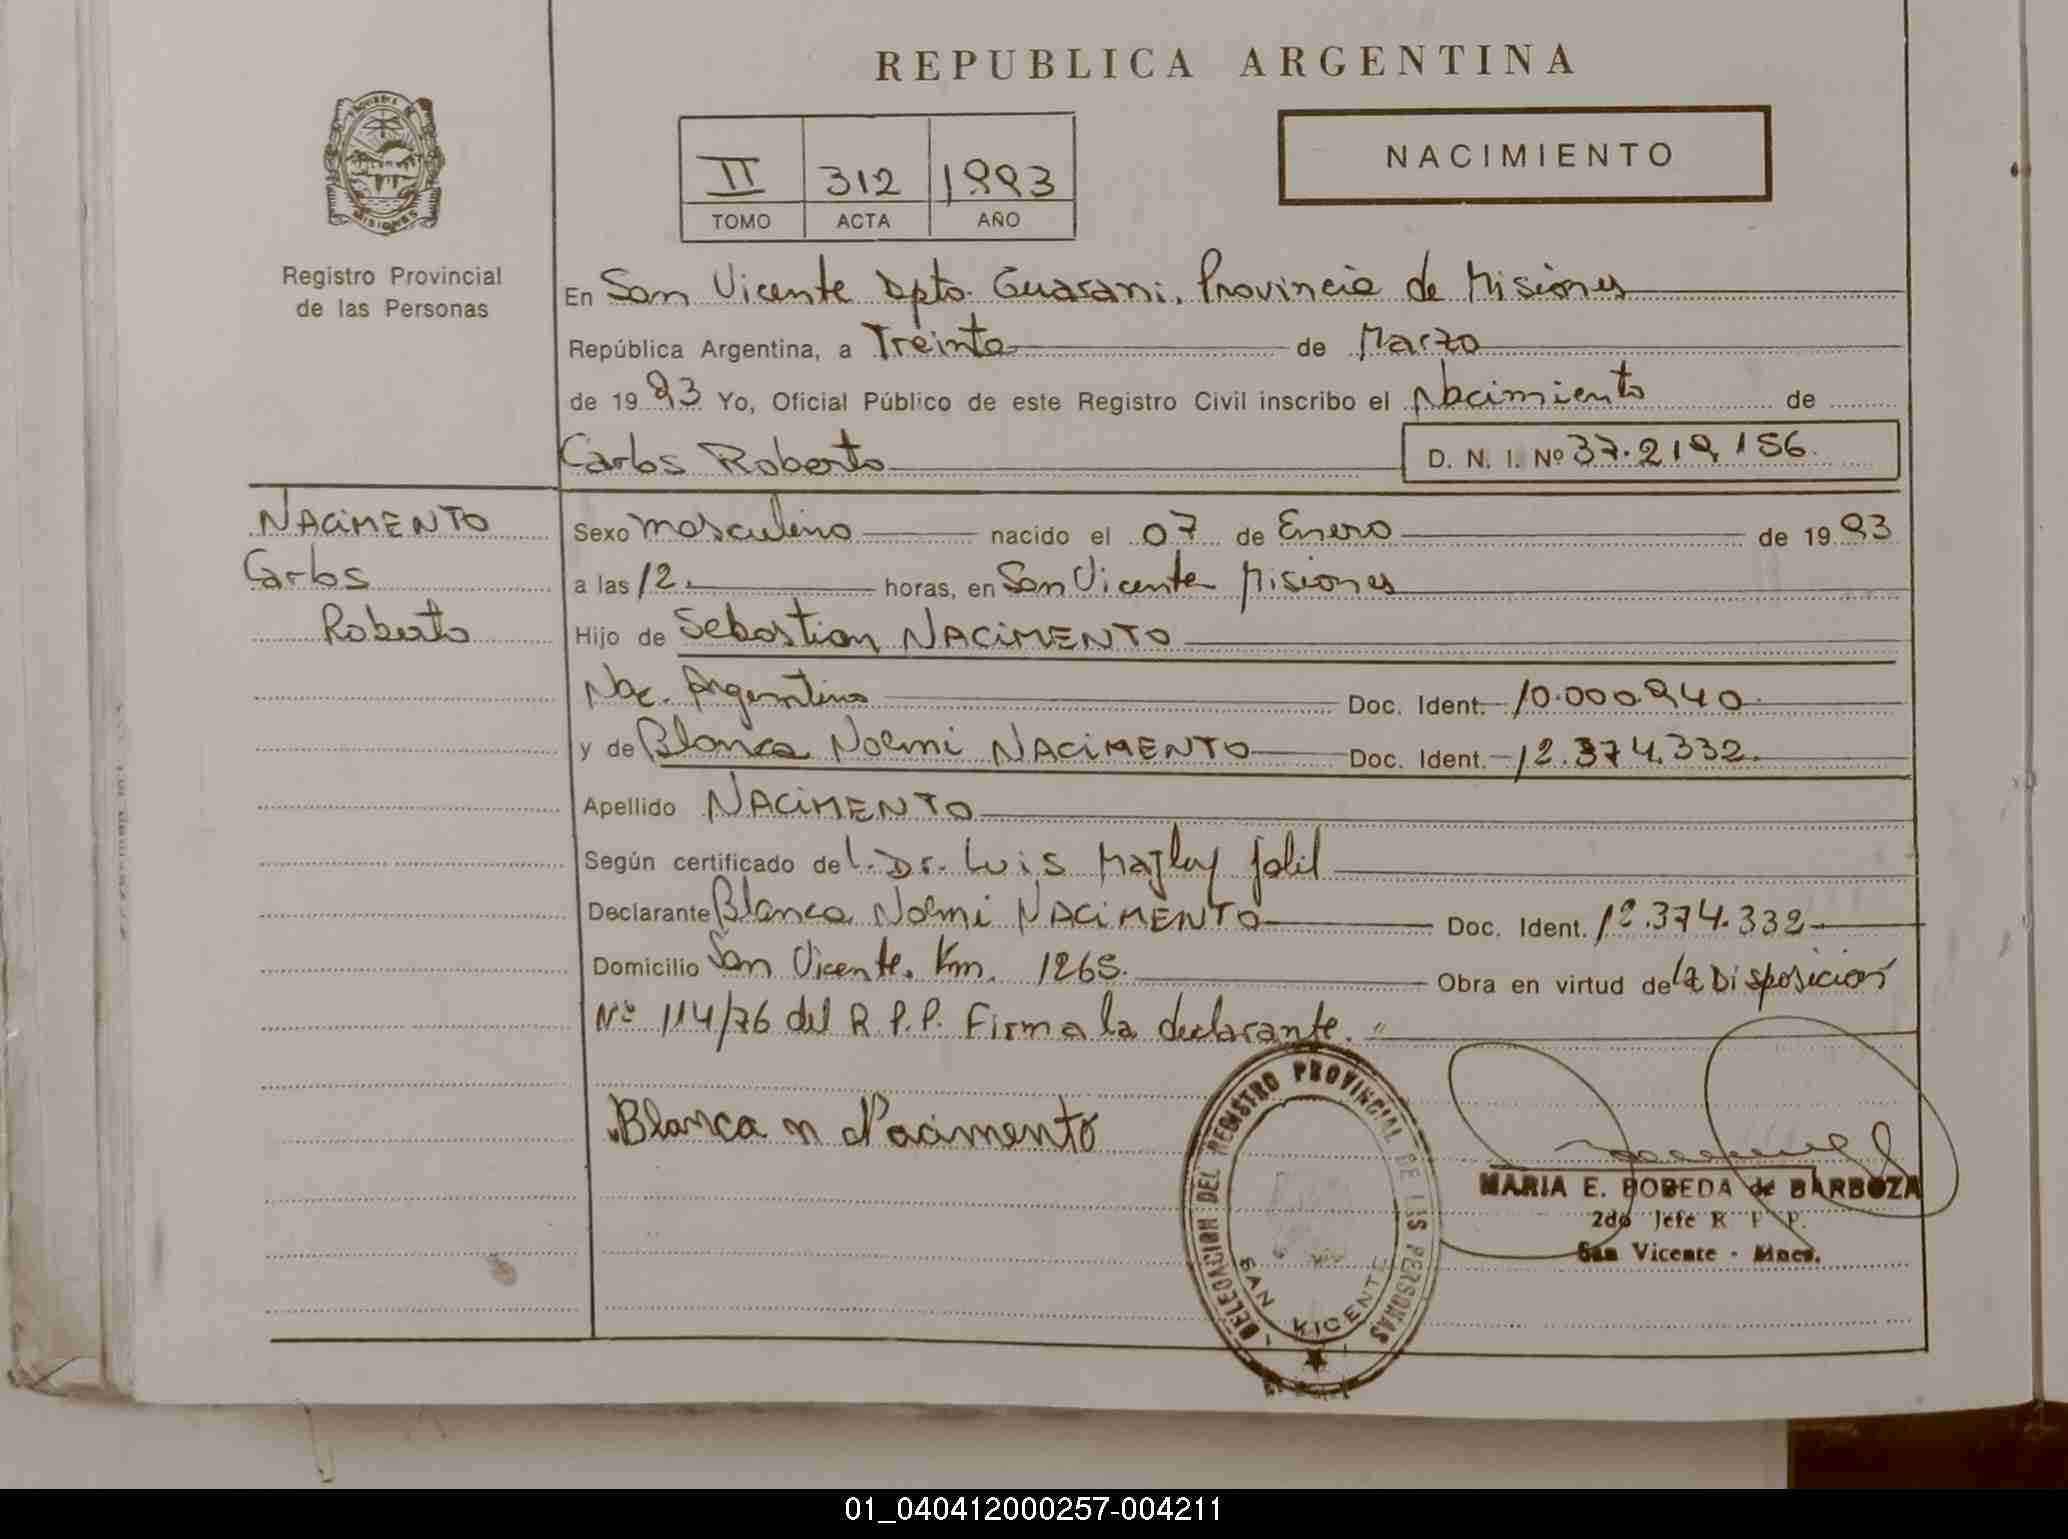 REPUBLICA ARGENTINA
PROVINCIA DE MISIONES
Registro Provincial
de las Personas
II 312 1993
TOMO ACTA AÑO
NACIMIENTO
En San Vicente Dpto. Guarani, Provincia de Misiones
República Argentina, a Treinta de Marzo
de 1993 Yo, Oficial Público de este Registro Civil inscribo el Nacimiento de
Carlos Roberto D. N. I. Nº 37.219.156.
NACIMENTO
Carlos
Roberto
Sexo masculino nacido el 07 de Enero de 1993
a las 12. horas, en San Vicente Misiones
Hijo de Sebastian NACIMENTO
Nac. Argentina Doc. Ident. 10.000.940.
y de Blanca Noemi NACIMENTO Doc. Ident. 12.374.332.
Apellido NACIMENTO
Según certificado del. Dr. Luis
Declarante Blanca Noemi NACIMENTO Doc. Ident. 12.374.332
Domicilio San Vicente. Km. 1265. Obra en virtud de la Disposicion
Nº 114/76 del R.P.P. Firma la declarante. "
Blanca n Nacimento
DELEGACION DEL REGISTRO PROVINCIAL DE LAS PERSONAS
SAN VICENTE
MARIA E. BOBEDA de BARBOZA
2do Jefe R P P.
San Vicente - Mnes.
01_040412000257-004211